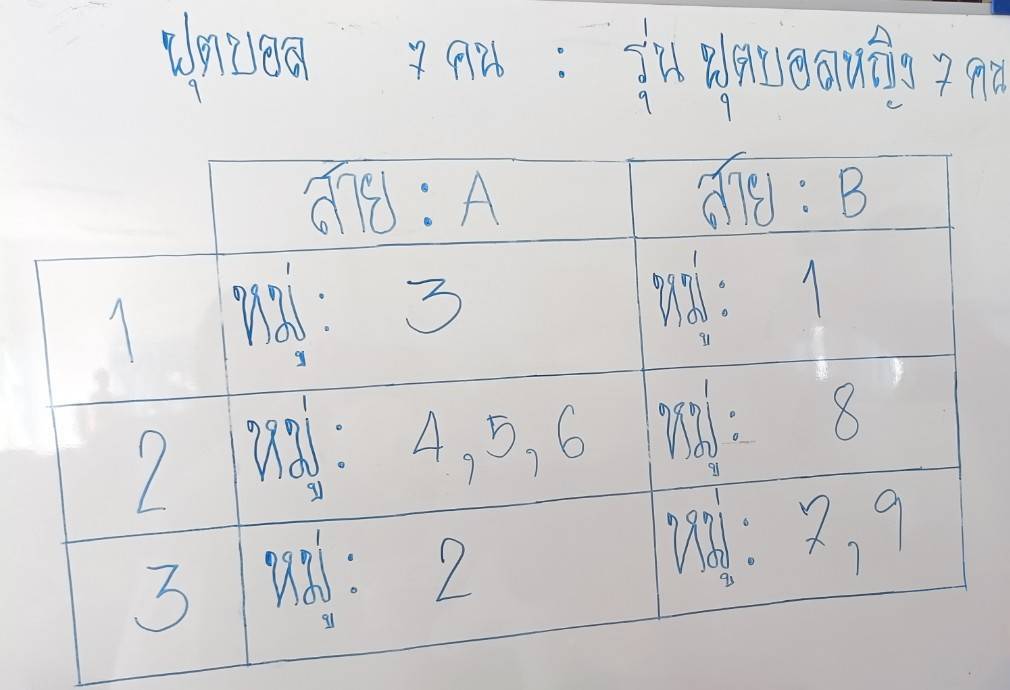 ฟุตบอล 7 คน : รุ่น ฟุตบอลหญิง 7 คน
สาย : A สาย : B
1 หมู่ : 3 หมู่ : 1
2 หมู่ : 4,5,6 หมู่ : 8
3 หมู่ : 2 หมู่ : 7,9